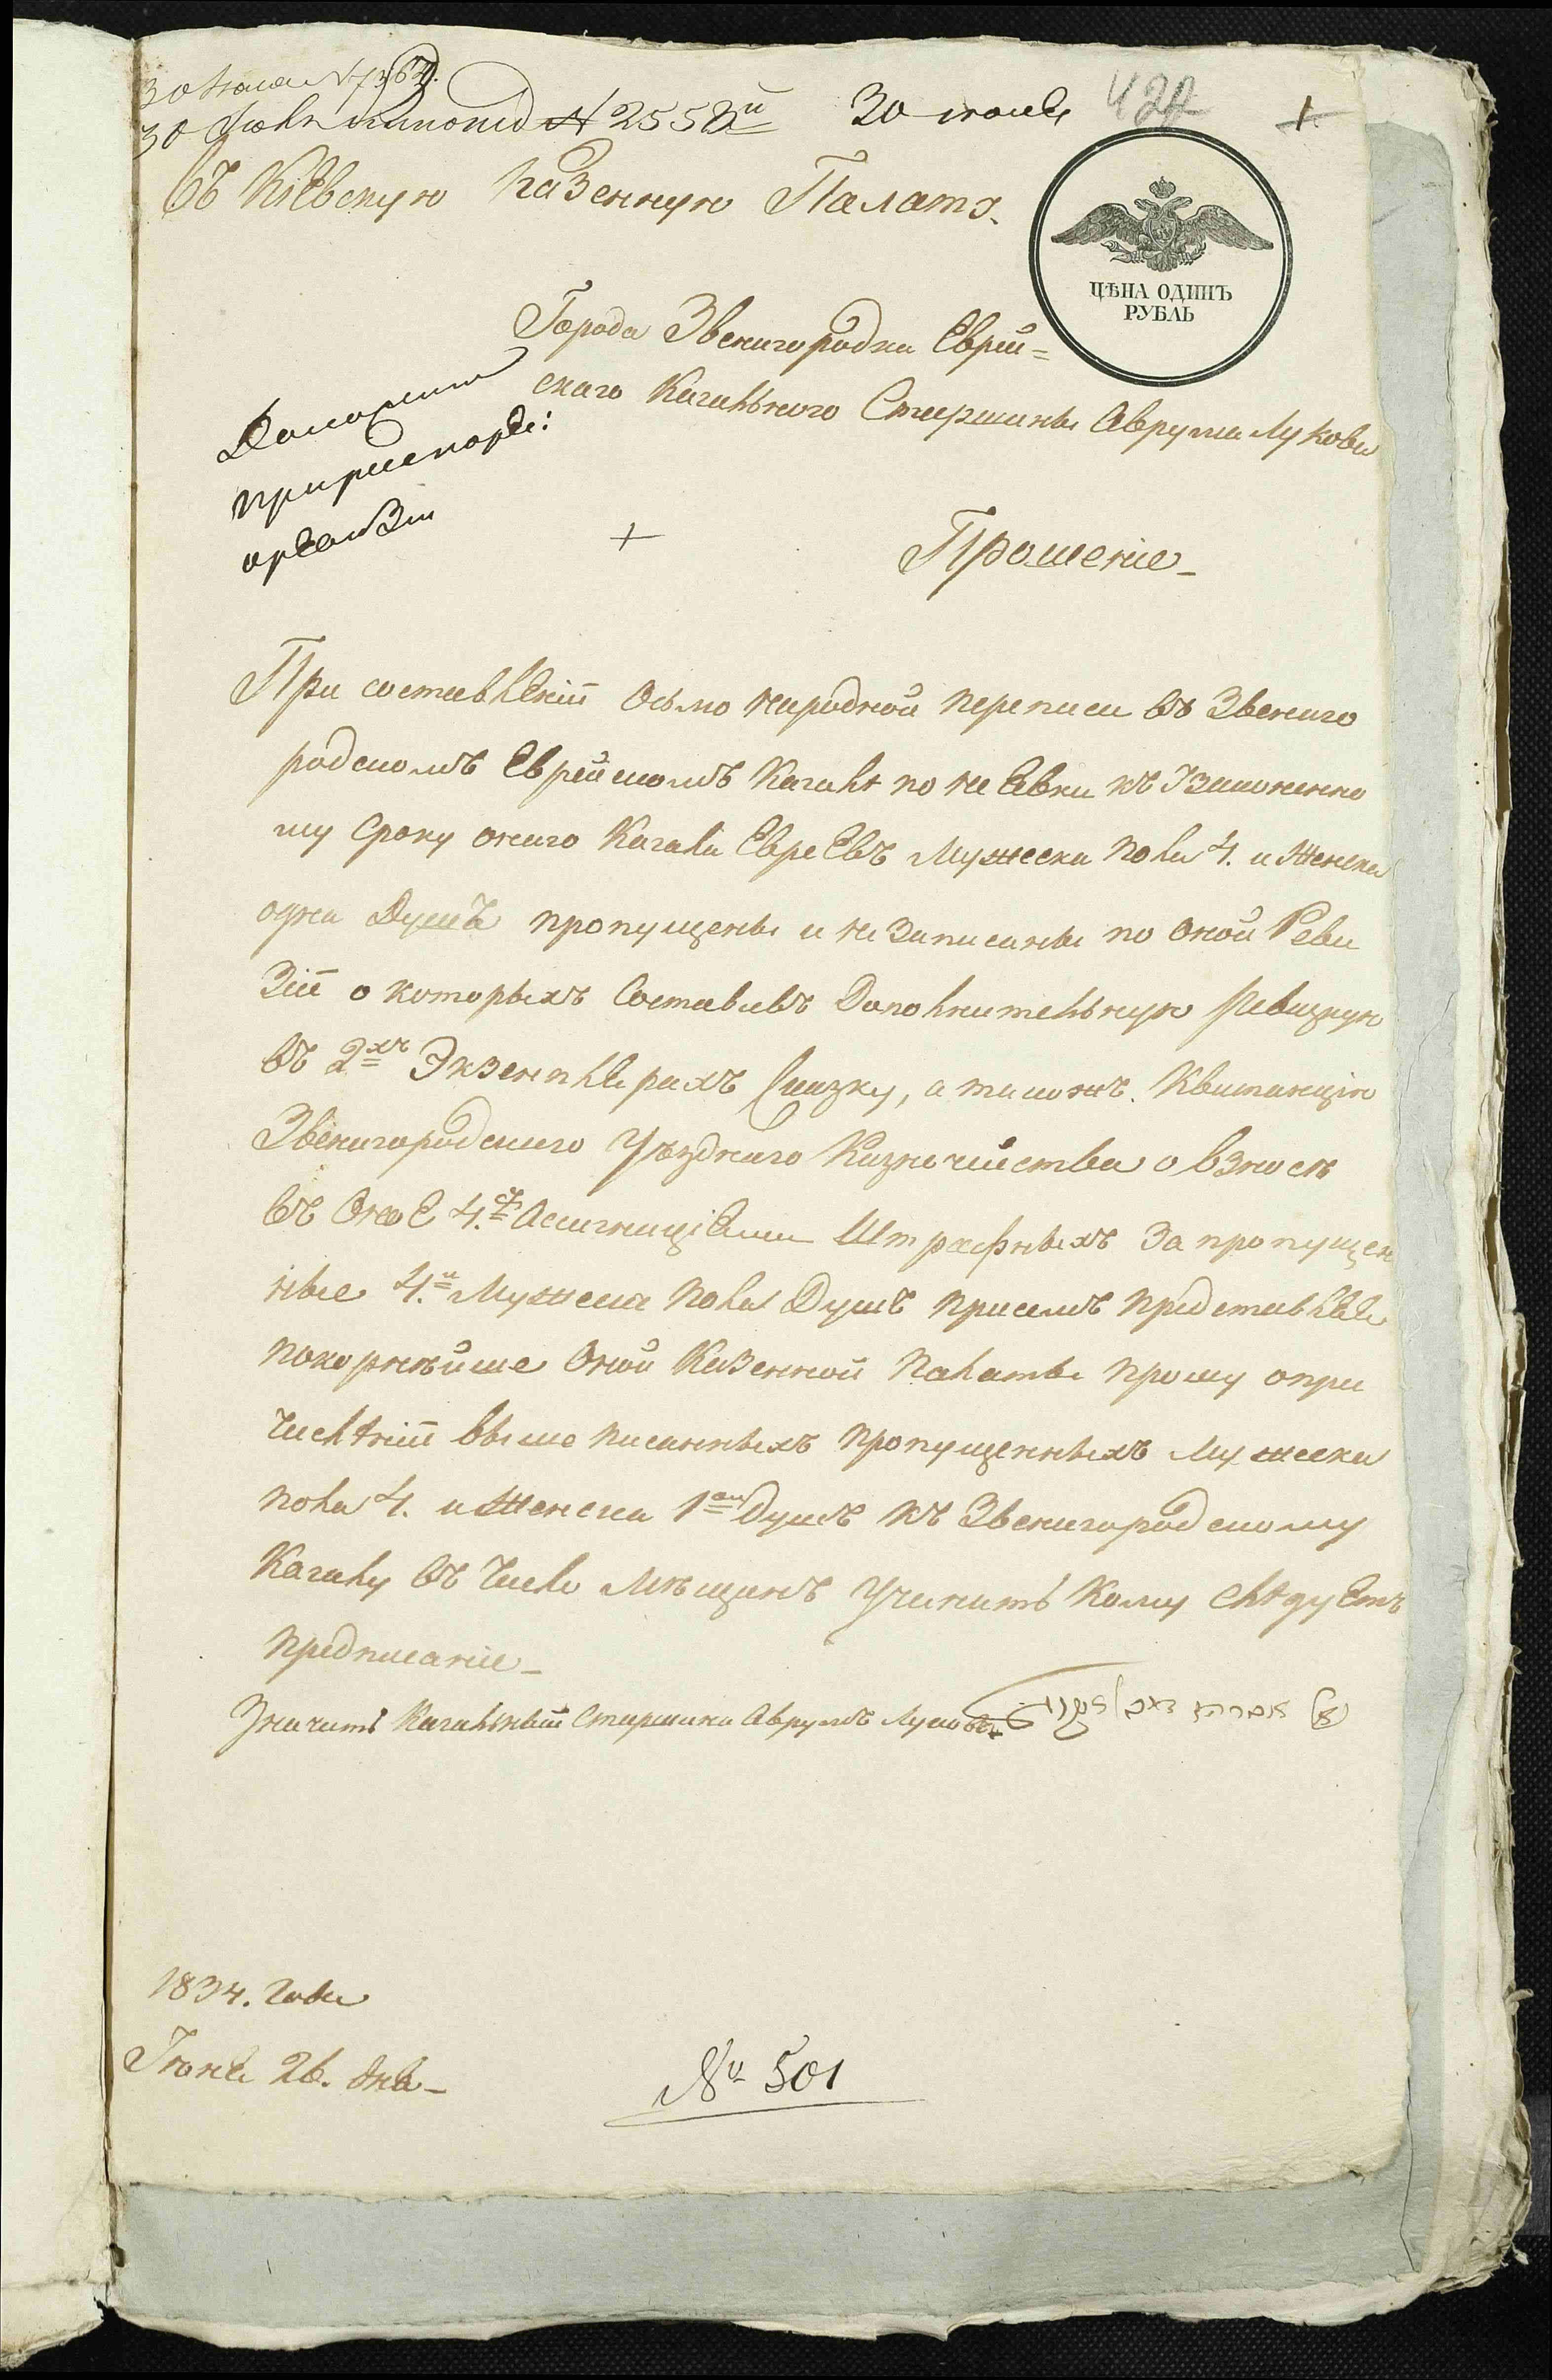 30 Июня № 7364.
30 Июня № 2558й
30 июня
422
1
Въ Кіевскую Казенную Палату.
ЦѢНА ОДИНЪ
РУБЛЬ
Города Звенигородки Еврей=
скаго Кагальнаго Старшины Аврума Лукова
Доложить
Прошеніе
При составленіи Осьмо народной переписи въ Звениго
родскомъ Еврейскомъ Кагалѣ по не Евки къ Узаконенно
му Сроку онаго Кагала ЕвреЕвъ Мужеска пола 4. и Женска
одна Душъ пропущены и не Записаны по оной Реви
зіи о которыхъ Составивъ Дополнительную Ревизкую
въ 2хъ Экземплерахъ Сказку, а такожъ Квитанцію
Звенигородского Уѣзднаго Казначейства о взносѣ
въ ОноЕ 4. Асигнаціями Штрафныхъ За пропущен
ные 4. Мужеска пола Душъ присемъ представляя
покорнѣйше Оной Казенной палаты прошу опри
числѣніи выше писанныхъ пропущенныхъ Мужеска
пола 4. и Женска 1ой Душъ къ Звенигородскому
Кагалу въ Числе Мѣщанъ Учинить Кому СлѣдуЕтъ
предписаніе
Значитъ Кагальный Старшина Аврумъ Луковъ
1834. Года
Іюня 26. дня
№ 501